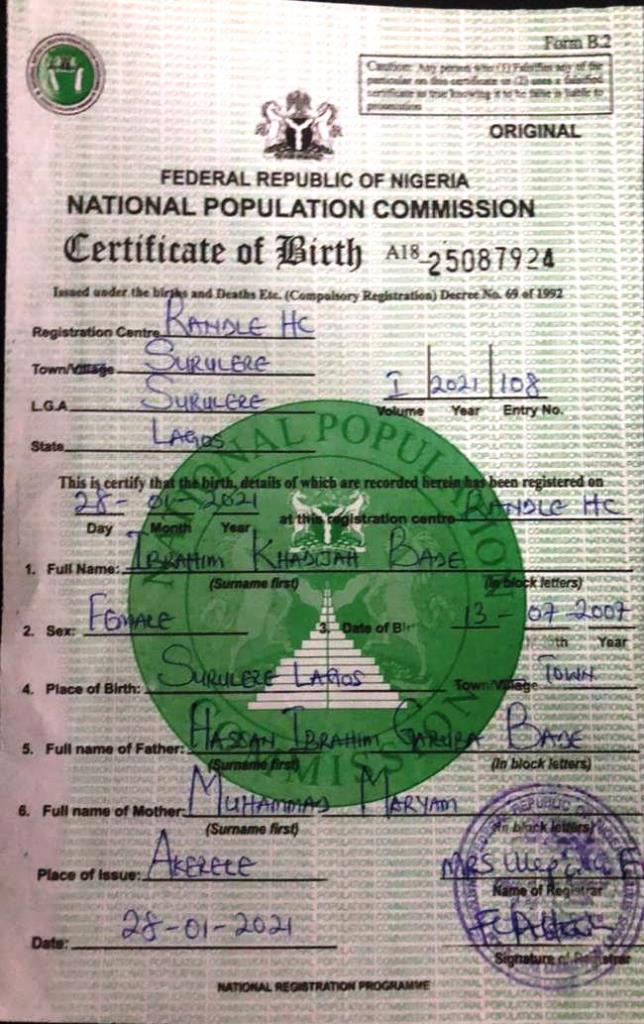 Form B.2
Caution: Any person who (1) Falsifies any of the
particular on this certificate or (2) uses a falsified
certificate as true knowing it to be false is liable to
prosecution
ORIGINAL
FEDERAL REPUBLIC OF NIGERIA
NATIONAL POPULATION COMMISSION
Certificate of Birth A18 25087924
Issued under the births and Deaths Etc. (Compulsory Registration) Decree No. 69 of 1992
Registration Centre RANDLE HC
Town/Village SURULERE
L.G.A SURULERE
I 2021 108
Volume Year Entry No.
State LAGOS
This is certify that the birth, details of which are recorded herein has been registered on
28- 01- 2021 at this registration centre RANDLE HC
Day Month Year
1. Full Name: IBRAHIM KHADIJAH BADE
(Surname first) (In block letters)
2. Sex: FEMALE 3. Date of Bir 13 - 07 - 2007
th Year
4. Place of Birth: SURULERE LAGOS Town/Village TOWN
5. Full name of Father: HASSAN IBRAHIM GARUBA BADE
(Surname first) (In block letters)
6. Full name of Mother: MUHAMMAD MARYAM
(Surname first) (In block letters)
Place of Issue: AKERELE MRS
Name of Registrar
Date: 28-01-2021
Signature of Registrar
NATIONAL REGISTRATION PROGRAMME
NATIONAL POPULATION COMMISSION